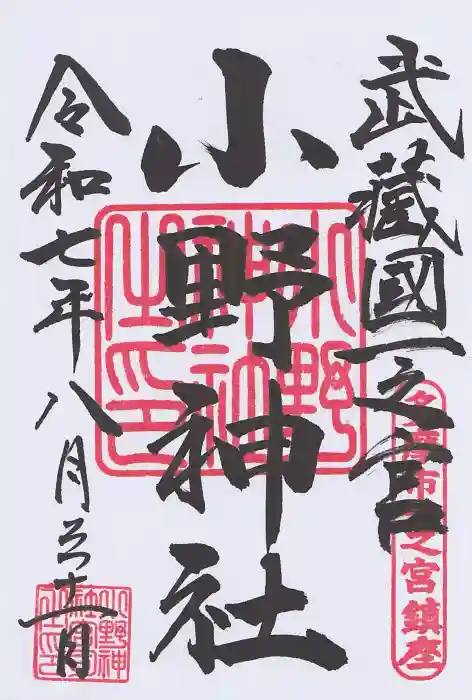 武藏國一之宮
多摩市一之宮鎮座
小野神社
小野神社之印
令和七年八月三十一日
小野神社之印